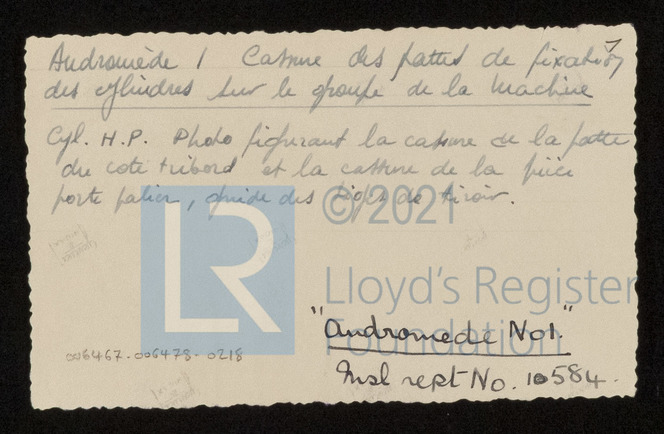 Andromède 1 Cassure des pattes de fixation
des cylindres sur le groupe de la machine
Cyl. H.P. Photo figurant la cassure de la patte
du coté tribord et la cassure de la pièce
porte palier, guide des tiges de tiroir.
LR
© 2021
Lloyd's Register
Foundation
"Andromede No1."
Msl rept No. 10584.
006467-006478-0218